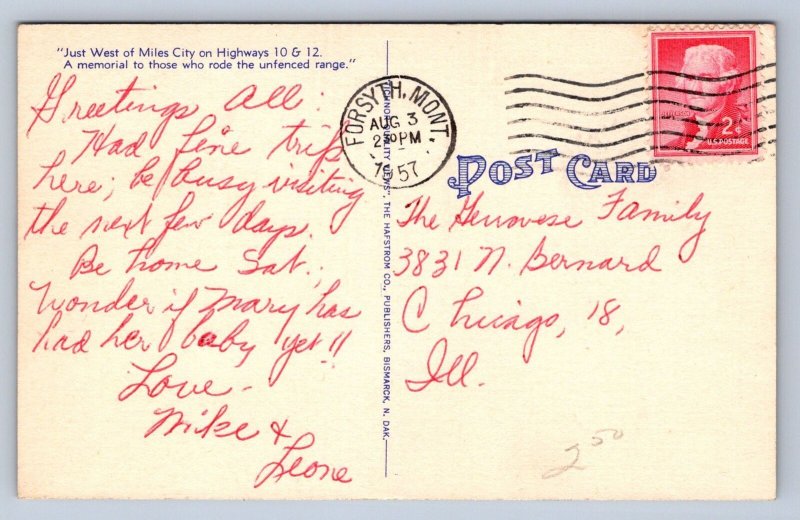 "Just West of Miles City on Highways 10 & 12.
A memorial to those who rode the unfenced range."
Greetings All:
Had fine trip
here, be busy visiting
the next few days.
Be home Sat.,
Wonder if Mary has
had her baby yet!!
Love -
Mike &
Leone
QUALITY VIEWS", THE HAFSTROM CO., PUBLISHERS, BISMARCK, N. DAK.
FORSYTH, MONT.
AUG 3
2 30 PM
1957
2¢
U.S. POSTAGE
POST CARD
The Genovese Family
3831 N. Bernard
Chicago, 18,
Ill.
2 50